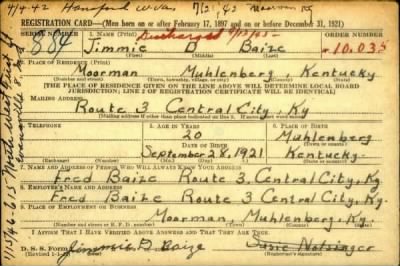 4/4-42 Hanford Wash 7/21/42 Moorman Ky
REGISTRATION CARD—(Men born on or after February 17, 1897 and on or before December 31, 1921)
SERIAL NUMBER 1. NAME (Print) Discharged ORDER NUMBER
S 884 Jimmie D Baize 10,035
(First) (Middle) (Last)
2. PLACE OF RESIDENCE (Print)
Moorman Muhlenberg Kentucky
(Number and street) (Town, township, village, or city) (County) (State)
[THE PLACE OF RESIDENCE GIVEN ON THE LINE ABOVE WILL DETERMINE LOCAL BOARD
JURISDICTION; LINE 2 OF REGISTRATION CERTIFICATE WILL BE IDENTICAL]
3. MAILING ADDRESS
Route 3 Central City, Ky
(Mailing address if other than place indicated on line 2. If same insert word same)
4. TELEPHONE 5. AGE IN YEARS 6. PLACE OF BIRTH
20 Muhlenberg
DATE OF BIRTH (Town or county)
September 28, 1921 Kentucky
(Exchange) (Number) (Mo.) (Day) (Yr.) (State or country)
7. NAME AND ADDRESS OF PERSON WHO WILL ALWAYS KNOW YOUR ADDRESS
Fred Baize Route 3, Central City, Ky.
8. EMPLOYER'S NAME AND ADDRESS
Fred Baize Route 3 Central City, Ky.
9. PLACE OF EMPLOYMENT OR BUSINESS
Moorman, Muhlenberg, Ky.
(Number and street or R. F. D. number) (Town) (County) (State)
I AFFIRM THAT I HAVE VERIFIED ABOVE ANSWERS AND THAT THEY ARE TRUE.
D. S. S. Form Jimmie D. Baize